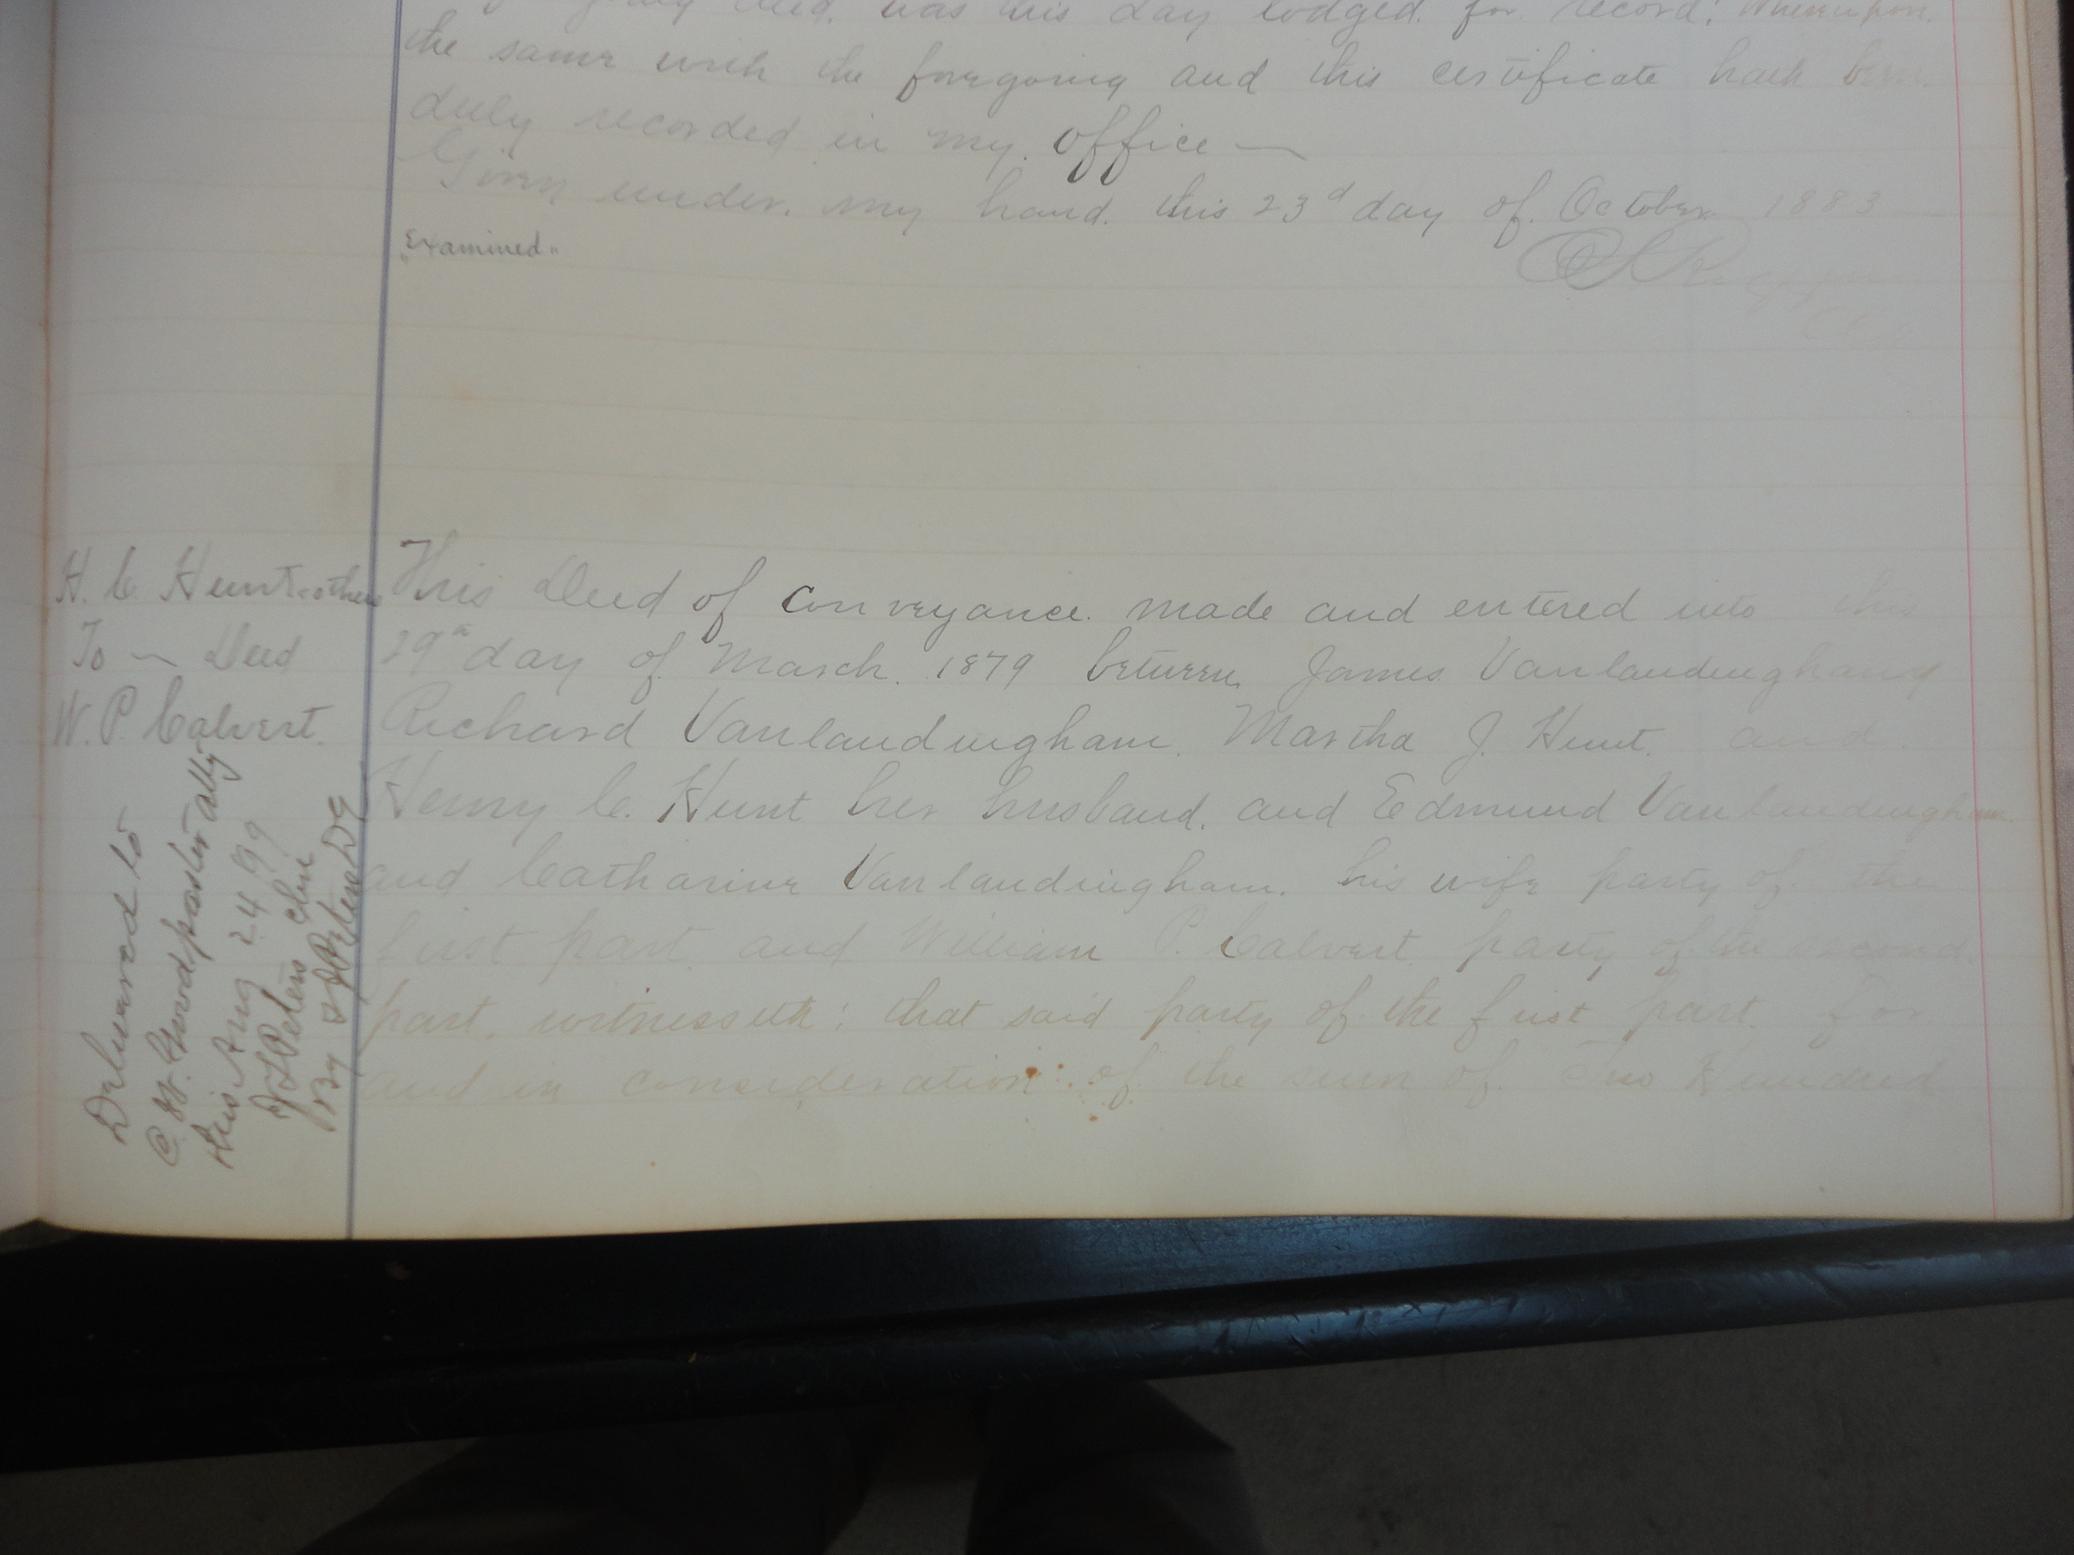 foregoing deed. was this day lodged. for record; Whereupon.
the same with the foregoing and this certificate hath been.
duly recorded in my. office —
Given under. my hand. this 23d day of. October 1883
"Examined"
H. C. Hunt & others
To — Deed
W. P. Calvert.
Delivered to
this Aug 24 99
This Deed of Conveyance. made and entered into this
29th day of March. 1879 between James Vanlandingham
Richard Vanlandingham. Martha J. Hunt. and
Henry C. Hunt her husband. and Edmund Vanlandingham
and Catharine Vanlandingham. his wife party of. the
first part and William P. Calvert party of the second
part. witnesseth: that said party of the first part. for
and in consideration of. the sum of. Two Hundred